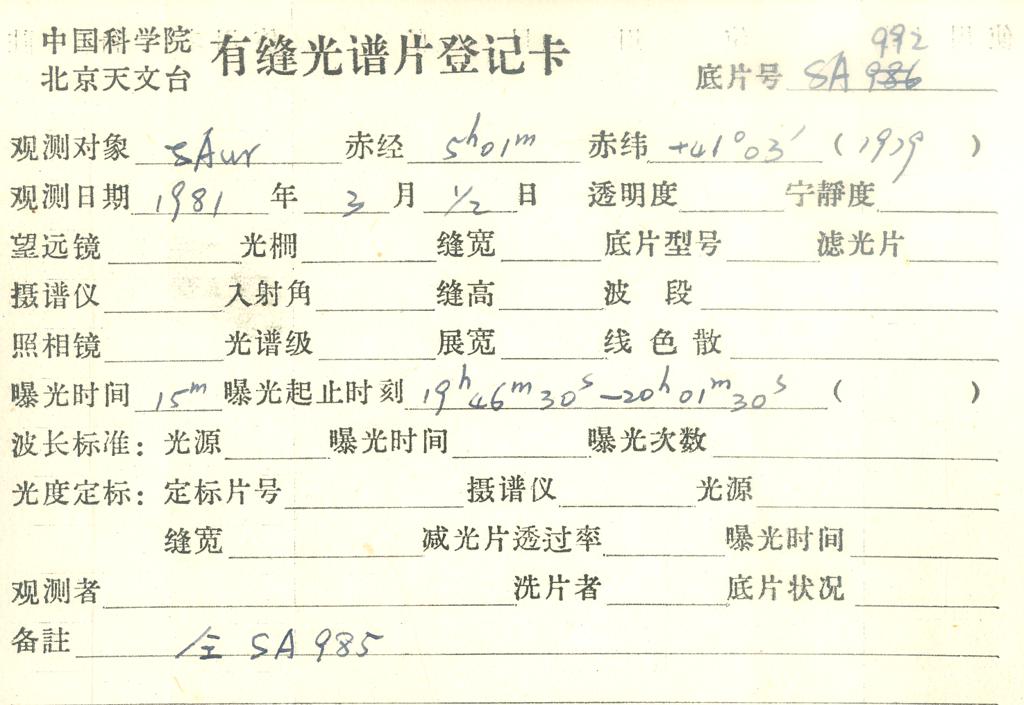 中国科学院 有缝光谱片登记卡 992
北京天文台 底片号 SA 986
观测对象 ζAur 赤经 5h01m 赤纬 +41°03′ (1979)
观测日期 1981 年 3 月 1/2 日 透明度 宁静度
望远镜 光栅 缝宽 底片型号 滤光片
摄谱仪 入射角 缝高 波段
照相镜 光谱级 展宽 线色散
曝光时间 15m 曝光起止时刻 19h46m30s—20h01m30s ( )
波长标准: 光源 曝光时间 曝光次数
光度定标: 定标片号 摄谱仪 光源
缝宽 减光片透过率 曝光时间
观测者 洗片者 底片状况
备註 仝 SA 985